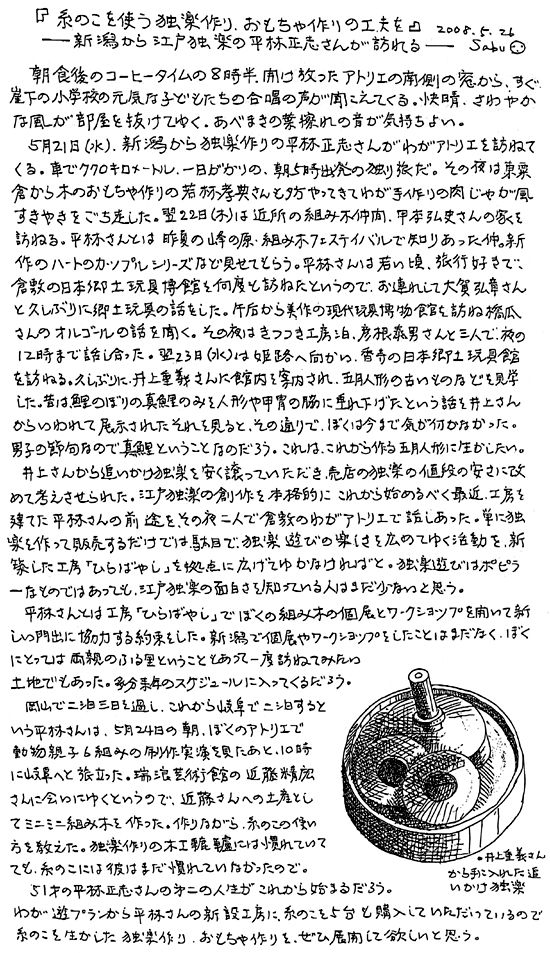 『糸のこを使う独楽作り、おもちゃ作りの工夫を』 2008.5.26
―新潟から江戸独楽の平林正志さんが訪れる― Sabu
朝食後のコーヒータイムの8時半、開け放ったアトリエの南側の窓から、すぐ
崖下の小学校の元気な子どもたちの合唱の声が聞こえてくる。快晴、さわやか
な風が部屋を抜けてゆく。あべまきの葉擦れの音が気持ちよい。
5月21日(水)、新潟から独楽作りの平林正志さんがわがアトリエを訪ねて
くる。車で770キロメートル、一日がかりの、朝5時出発の独り旅だ。その夜は東粟
倉から木のおもちゃ作りの若林孝典さんも夕方やってきてわが手作りの肉じゃが風
すきやきをごち走した。翌22日(木)は近所の組み木仲間、甲本弘史さんの家を
訪ねる。平林さんとは昨夏の峰の原・組み木フェスティバルで知りあった仲。新
作のハートのカップルシリーズなど見せてもらう。平林さんは若い頃、旅行好きで、
倉敷の日本郷土玩具博館を何度も訪ねたというので、お連れして大賀弘章さん
と久しぶりに郷土玩具の話をした。午后から美作の現代玩具博物館を訪ね橋爪
さんのオルゴールの話を聞く。その夜はきつつき工房泊、彦根泰男さんと三人で、夜の
12時まで話し合った。翌23日(水)は姫路へ向かい、香寺の日本郷土玩具館
を訪ねる。久しぶりに、井上重義さんに館内を案内され、五月人形の古いものなどを見学
した。昔は鯉のぼりの真鯉のみを人形や甲冑の脇に垂れ下げたという話を井上さん
からいわれて展示されたそれを見ると、その通りで、ぼくは今まで気が付かなかった。
男子の節句なので真鯉ということなのだろう。これは、これから作る五月人形に生かしたい。
井上さんから追いかけ独楽を安く譲っていただき、売店の独楽の値段の安さに改
めて考えさせられた。江戸独楽の創作を本格的にこれから始めるべく最近、工房を
建てた平林さんの前途を、その夜二人で倉敷のわがアトリエで話しあった。単に独
楽を作って販売するだけでは駄目で、独楽遊びの楽しさを広めてゆく活動を、新
築した工房「ひらばやし」を拠点に広げてゆかなければと。独楽遊びはポピラ
ーなものではあっても、江戸独楽の面白さを知っている人はまだ少ないと思う。
平林さんとは工房「ひらばやし」でぼくの組み木の個展とワークショップを開いて新
しい門出に協力する約束をした。新潟で個展やワークショップをしたことはまだなく、ぼく
にとっては両親のふる里ということもあって一度訪ねてみたい
土地でもあった。多分来年のスケジュールに入ってくるだろう。
岡山で二泊三日を過し、これから岐阜で二泊すると
いう平林さんは、5月24日の朝、ぼくのアトリエで
動物親子6組みの制作実演を見たあと、10時
に岐阜へと旅立った。瑞浪芸術館の近藤精宏
さんに会いにゆくというので、近藤さんへの土産とし
てミニミニ組み木を作った。作りながら、糸のこの使い
方を教えた。独楽作りの木工轆轤には慣れていて
も、糸のこには彼はまだ慣れていなかったので。
51才の平林正志さんの第二の人生がこれから始まるだろう。
わが遊プランから平林さんの新設工房に、糸のこを5台も購入していただいているので
糸のこを生かした独楽作り、おもちゃ作りを、ぜひ展開して欲しいと思う。
・井上重義さん
から手に入れた追
いかけ独楽